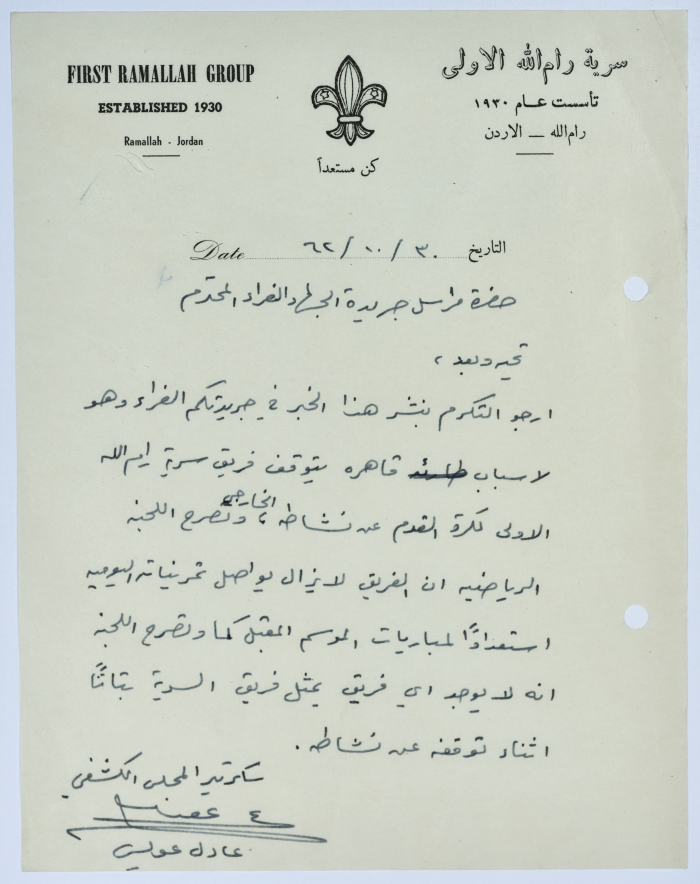 FIRST RAMALLAH GROUP
ESTABLISHED 1930
Ramallah - Jordan
سرية رام الله الاولى
تأسست عـام ١٩٣٠
رام الله — الاردن
كن مستعداً
Date ٣٠ / ١٠ / ٦٢ التاريخ
حضرة مراسل جريدة الجهاد الغراء المحترم
تحيه وبعد ،
ارجو التكرم بنشر هذا الخبر في جريدتكم الغراء وهو
لاسباب قاهره يتوقف فريق سرية رام الله
الاولى لكرة القدم عن نشاطه الخارجي ، وتصرح اللجنه
الرياضيه ان الفريق لا يزال يواصل تمريناته اليوميه
استعدادًا لمباريات الموسم المقبل كما وتصرح اللجنه
انه لا يوجد اي فريق يمثل فريق السرية بتاتًا
اثناء توقفه عن نشاطه .
سكرتير المجلس الكشفي
عادل عويس